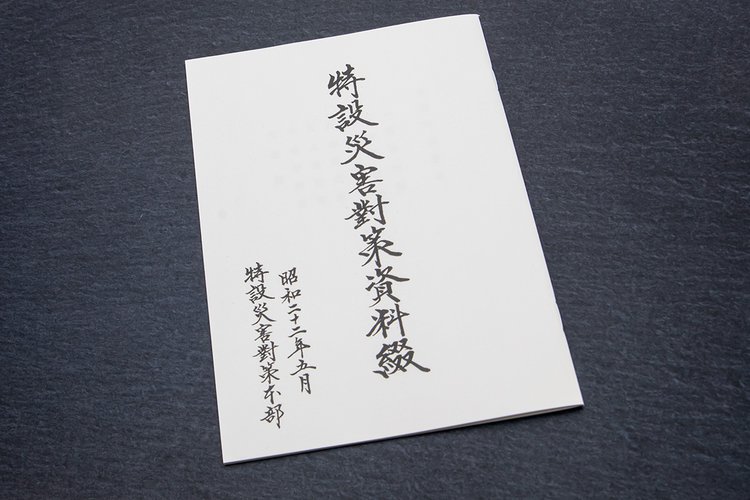 特設災害對策資料綴
昭和二十二年五月
特設災害對策本部